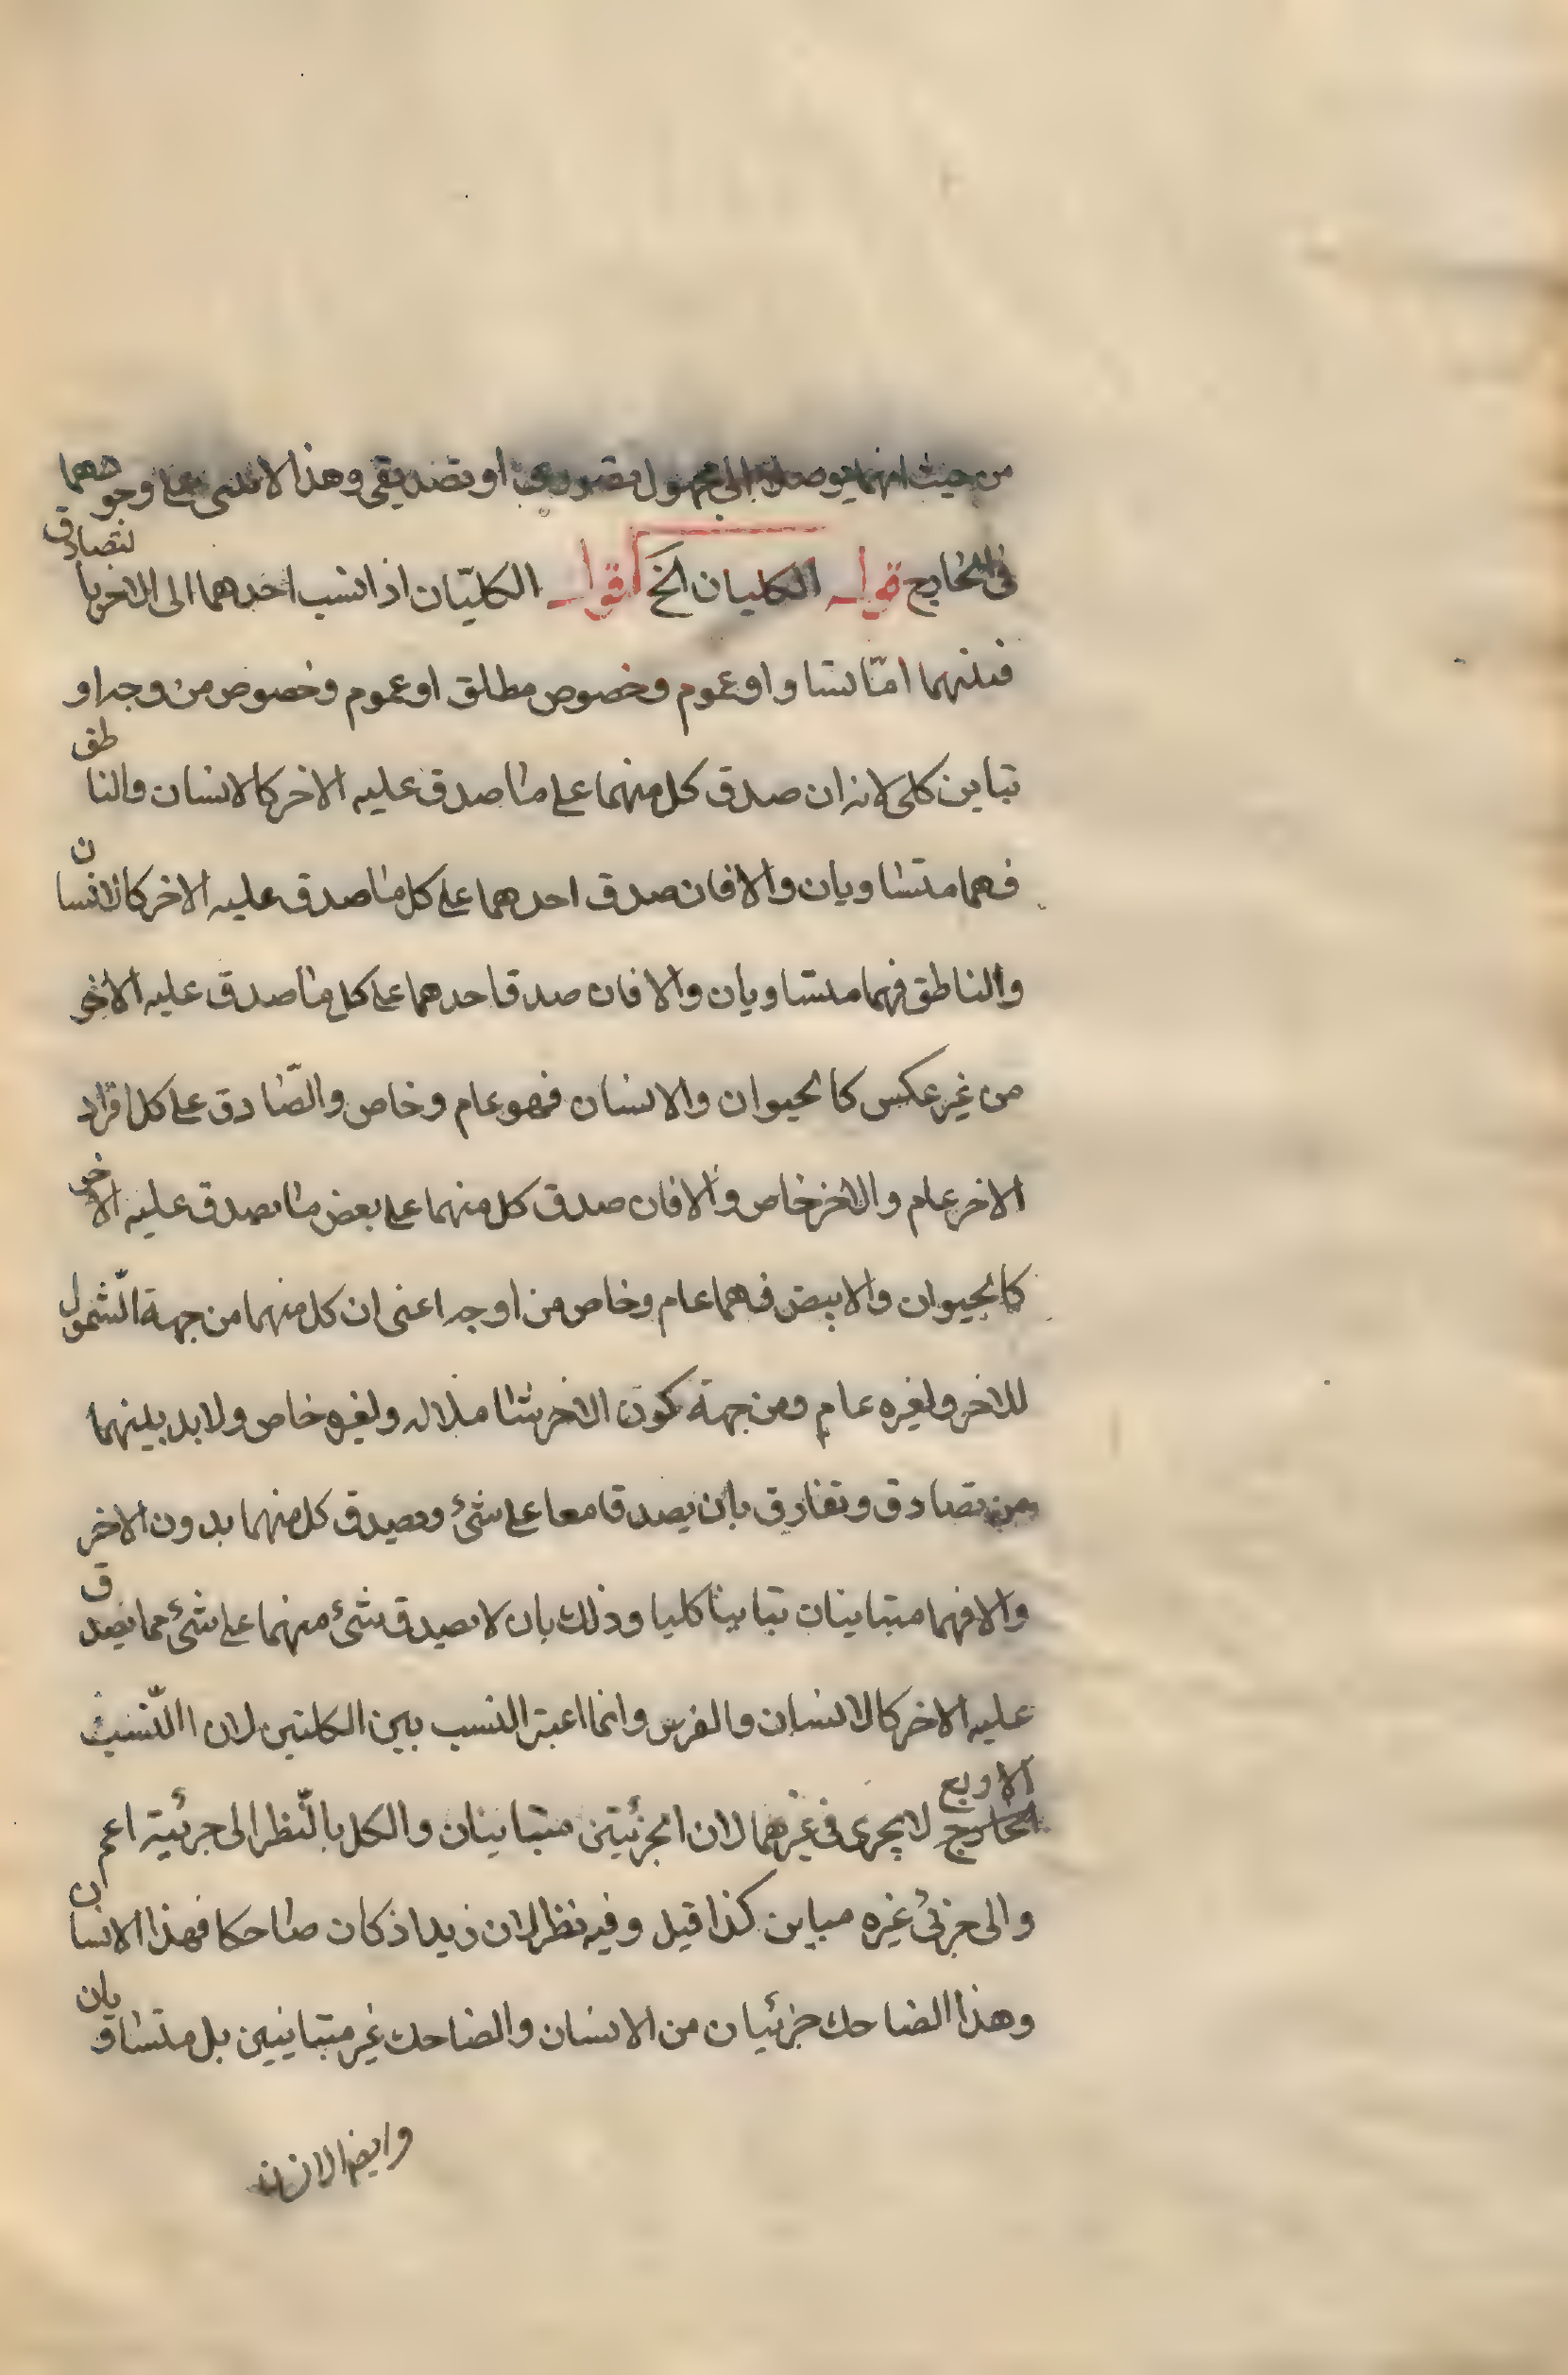 من حيث انهما يوصلان الى مجهول تصوري او تصديقي وهذا لا يبتنى على وجودهما
في الخارج قوله الكليان الخ اقول الكليّان اذا نسب احدهما الى الاخر بالتصادق
فبينهما امّا تساو او عموم وخصوص مطلق او عموم وخصوص من وجه او
تباين كلى لانه ان صدق كل منهما على ما صدق عليه الاخر كالانسان والناطق
فهما متساويان والا فان صدق احدهما على كل ما صدق عليه الاخر كالانسان
والناطق فهما متساويان والا فان صدق احدهما على كل ما صدق عليه الاخر
من غير عكس كالحيوان والانسان فهو عام وخاص والصّادق على كل افراد
الاخر عام والاخر خاص والا فان صدق كل منهما على بعض ما يصدق عليه الاخر
كالحيوان والابيض فهما عام وخاص من اوجه اعنى ان كل منهما من جهة الشّمول
للاخر ولغيره عام ومن جهة كون الاخر شاملا له ولغيره خاص ولا بد بينهما
من تصادق وتفارق بان يصدقا معا على شئ ويصدق كل منهما بدون الاخر
والا فهما متباينان تباينا كليا وذلك بان لا يصدق شئ منهما على شئ مما يصدق
عليه الاخر كالانسان والفرس وانما اعتبر النسب بين الكليتين لان النّسب
الاربع
الخارج لا يجرى في غيرهما لان الجزئيتين متباينان والكل بالنّظر الى جزئيه اعم
والى جزئ غيره مباين كذا قيل وفيه نظر لان زيدا اذ كان ضاحكا فهذا الانسان
وهذا الضاحك جزئيان من الانسان والضاحك غير متباينين بل متساويان
وايضا لان